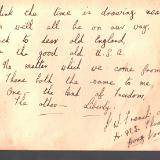 think the time is drawing near
well all be on our way,
Back to dear old England,
the good old U.S.A.
No matter which we come from
These both the same to me,
One - the land of freedom,
The other - Liberty.